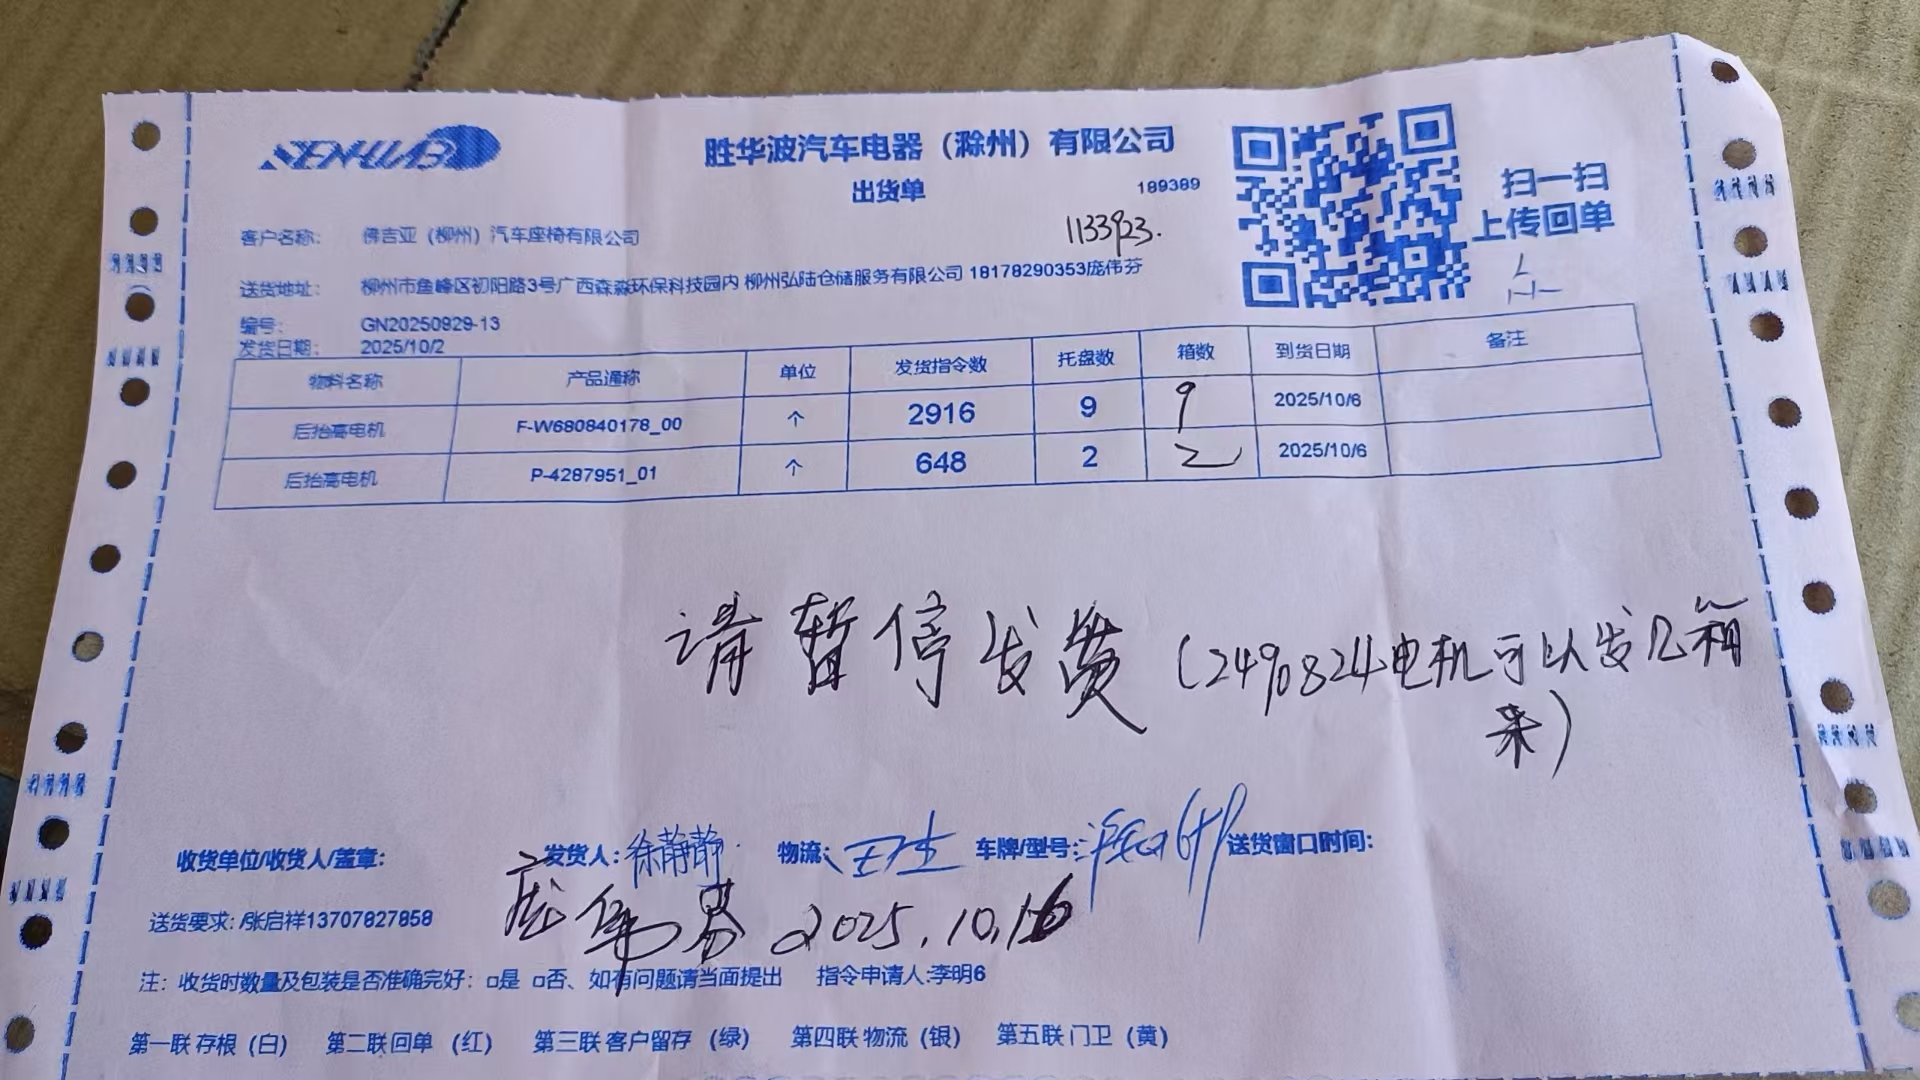 SENHUAB
胜华波汽车电器（滁州）有限公司
出货单
189389
1133923.
扫一扫
上传回单
客户名称： 佛吉亚（柳州）汽车座椅有限公司
送货地址： 柳州市鱼峰区初阳路3号广西森淼环保科技园内 柳州弘陆仓储服务有限公司 18178290353庞伟芬
编号： GN20250929-13
发货日期： 2025/10/2
物料名称 产品通称 单位 发货指令数 托盘数 箱数 到货日期 备注
后抬高电机 F-W680840178_00 个 2916 9 9 2025/10/6
后抬高电机 P-4287951_01 个 648 2 2 2025/10/6
请暂停发货（2490824电机可以发几箱
来）
收货单位/收货人/盖章： 发货人：徐静静 物流： 车牌/型号： 送货窗口时间：
庞伟芬 2025.10.16
送货要求：/张启祥13707827858
注：收货时数量及包装是否准确完好：□是 □否、如有问题请当面提出 指令申请人:李明6
第一联 存根（白） 第二联 回单（红） 第三联 客户留存（绿） 第四联 物流（银） 第五联 门卫（黄）